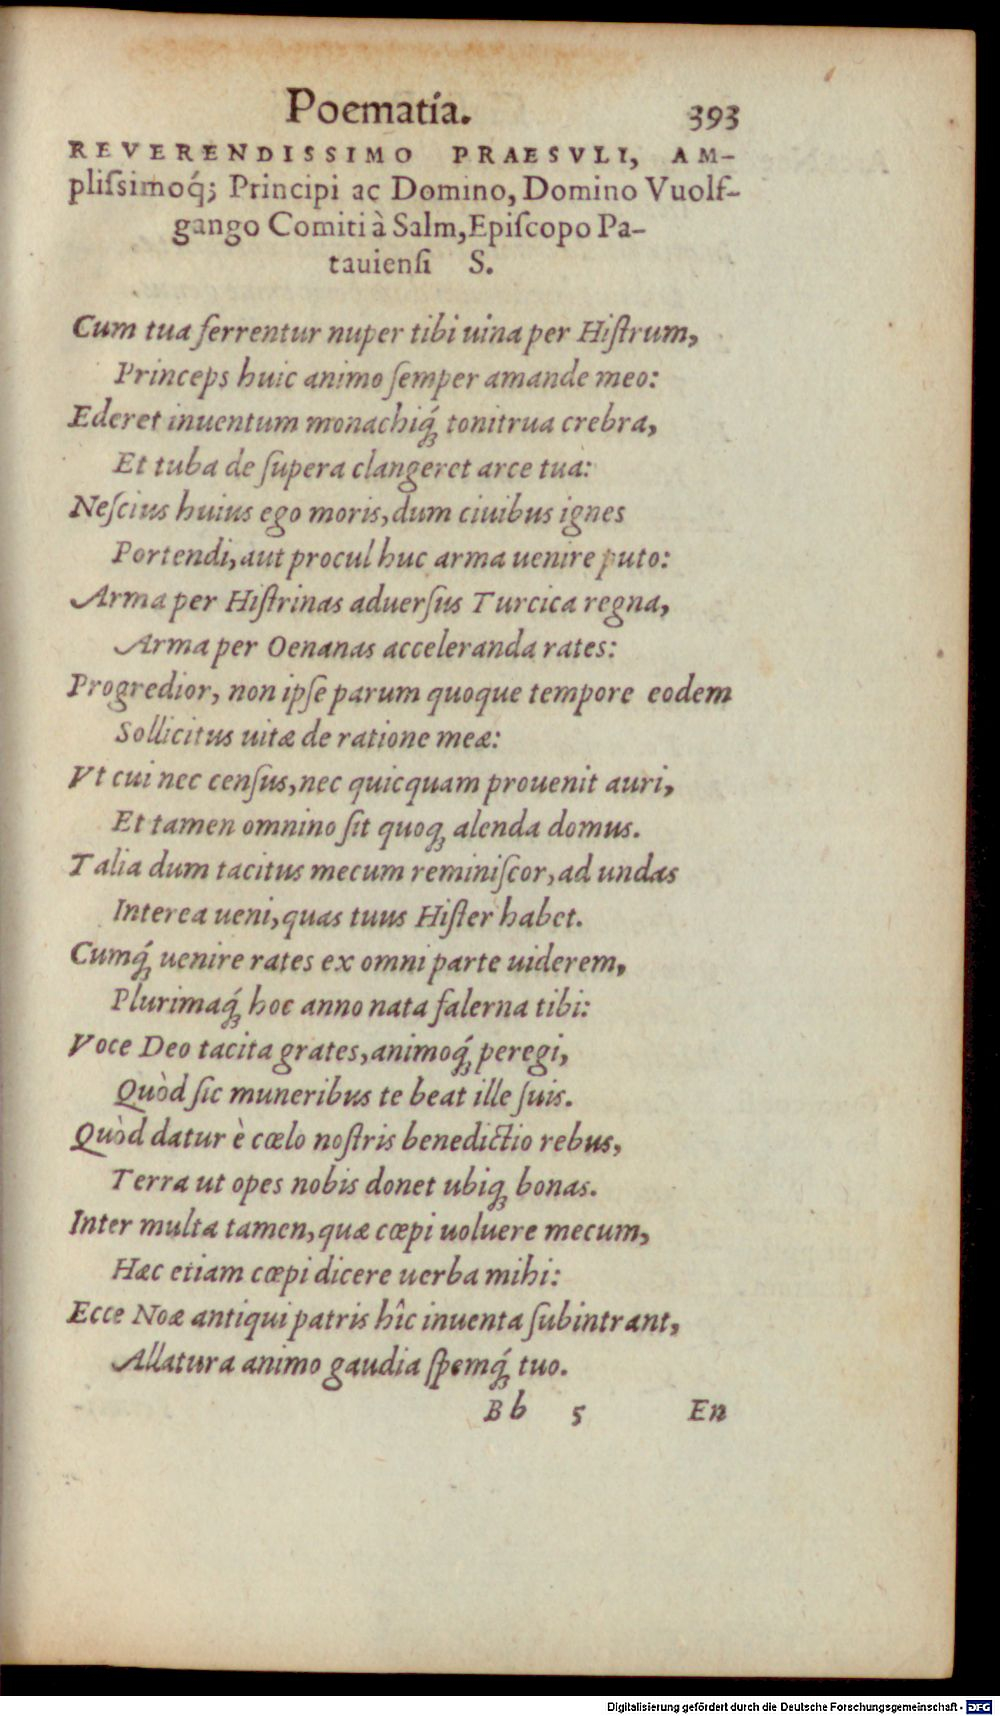 Poematia. 393
REVERENDISSIMO PRAESVLI, AM-
pliſsimoq́; Principi ac Domino, Domino Vuolf-
gango Comiti à Salm, Epiſcopo Pa-
tauienſi S.
Cum tua ferrentur nuper tibi uina per Hiſtrum,
Princeps huic animo ſemper amande meo:
Ederet inuentum monachiq́; tonitrua crebra,
Et tuba de ſupera clangeret arce tua:
Neſcius huius ego moris, dum ciuibus ignes
Portendi, aut procul huc arma uenire puto:
Arma per Hiſtrinas aduerſus Turcica regna,
Arma per Oenanas acceleranda rates:
Progredior, non ipſe parum quoque tempore eodem
Sollicitus uitæ de ratione meæ:
Vt cui nec cenſus, nec quicquam prouenit auri,
Et tamen omnino ſit quoq; alenda domus.
Talia dum tacitus mecum reminiſcor, ad undas
Interea ueni, quas tuus Hiſter habet.
Cumq́; uenire rates ex omni parte uiderem,
Plurimaq́; hoc anno nata falerna tibi:
Voce Deo tacita grates, animoq́; peregi,
Quòd ſic muneribus te beat ille ſuis.
Quòd datur è cœlo noſtris benedictio rebus,
Terra ut opes nobis donet ubiq; bonas.
Inter multa tamen, quæ cœpi uoluere mecum,
Hæc etiam cœpi dicere uerba mihi:
Ecce Noæ antiqui patris hîc inuenta ſubintrant,
Allatura animo gaudia ſpemq́; tuo.
Bb 5 En
Digitalisierung gefördert durch die Deutsche Forschungsgemeinschaft - DFG